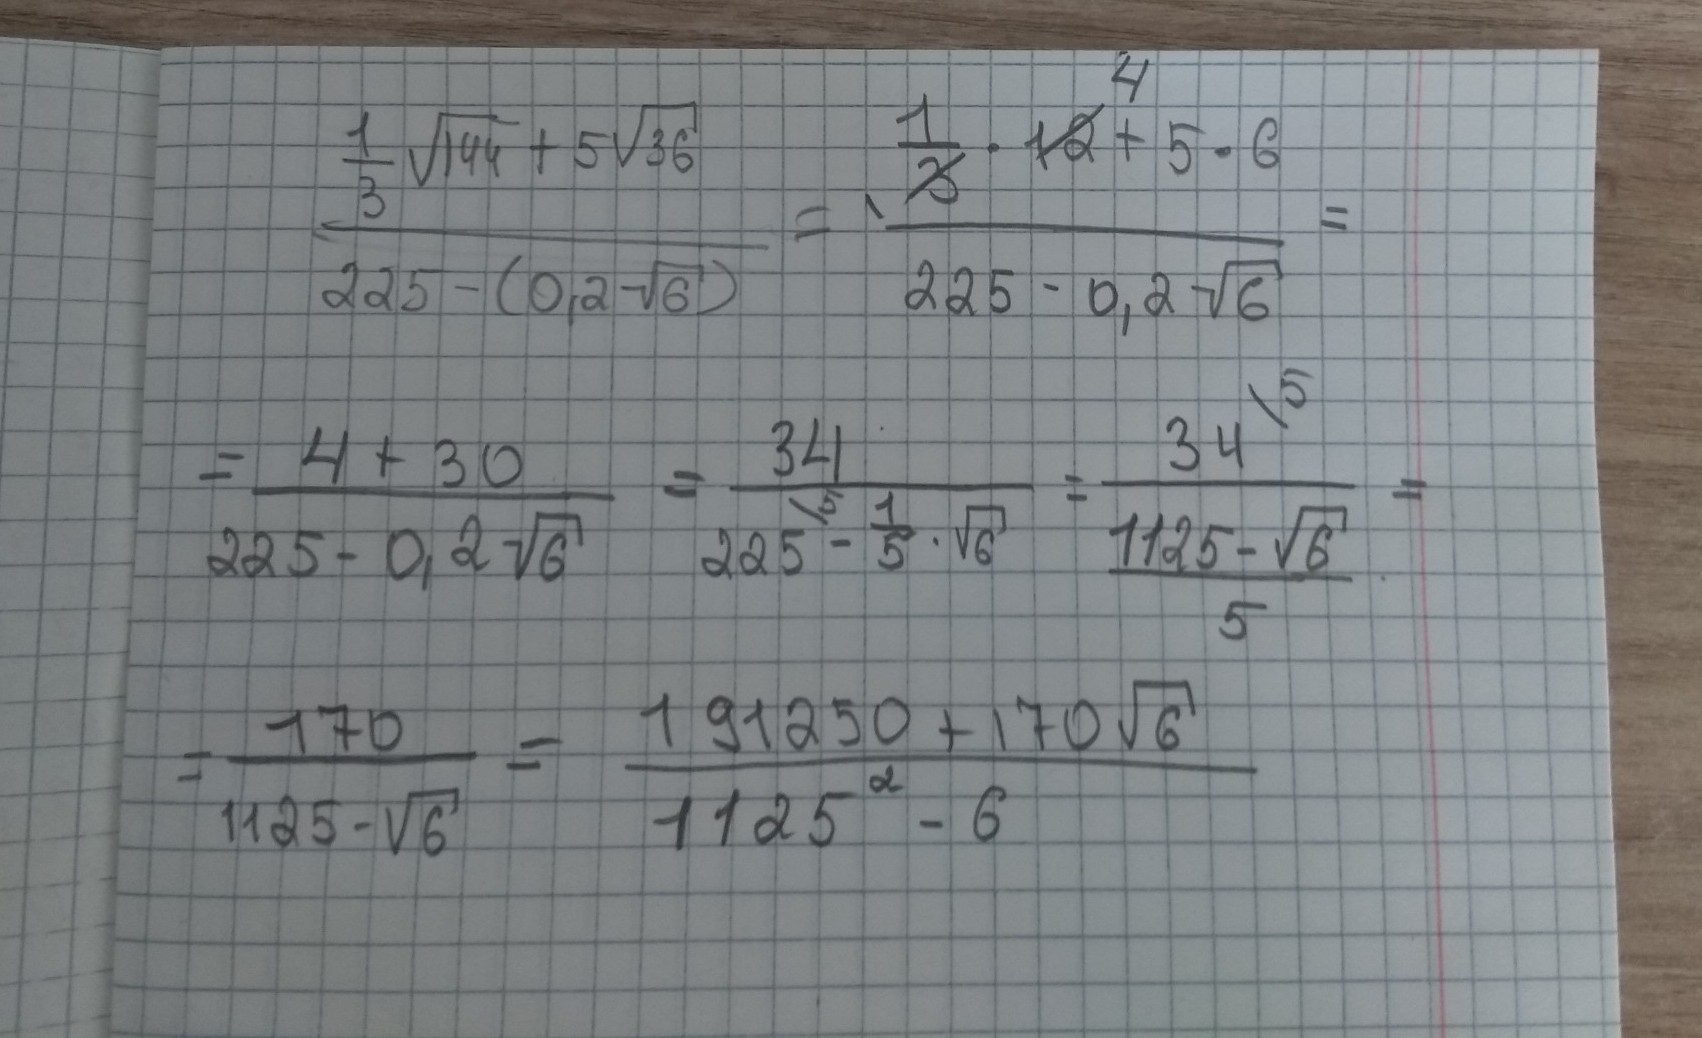 (1/3 √144 + 5√36) / (225 - (0,2√6)) = (1/3 · 12 + 5 · 6) / (225 - 0,2√6) =
= (4 + 30) / (225 - 0,2√6) = 34 / (225 - 1/5 · √6) = 34 / ((1125 - √6) / 5) =
= 170 / (1125 - √6) = (191250 + 170√6) / (1125² - 6)